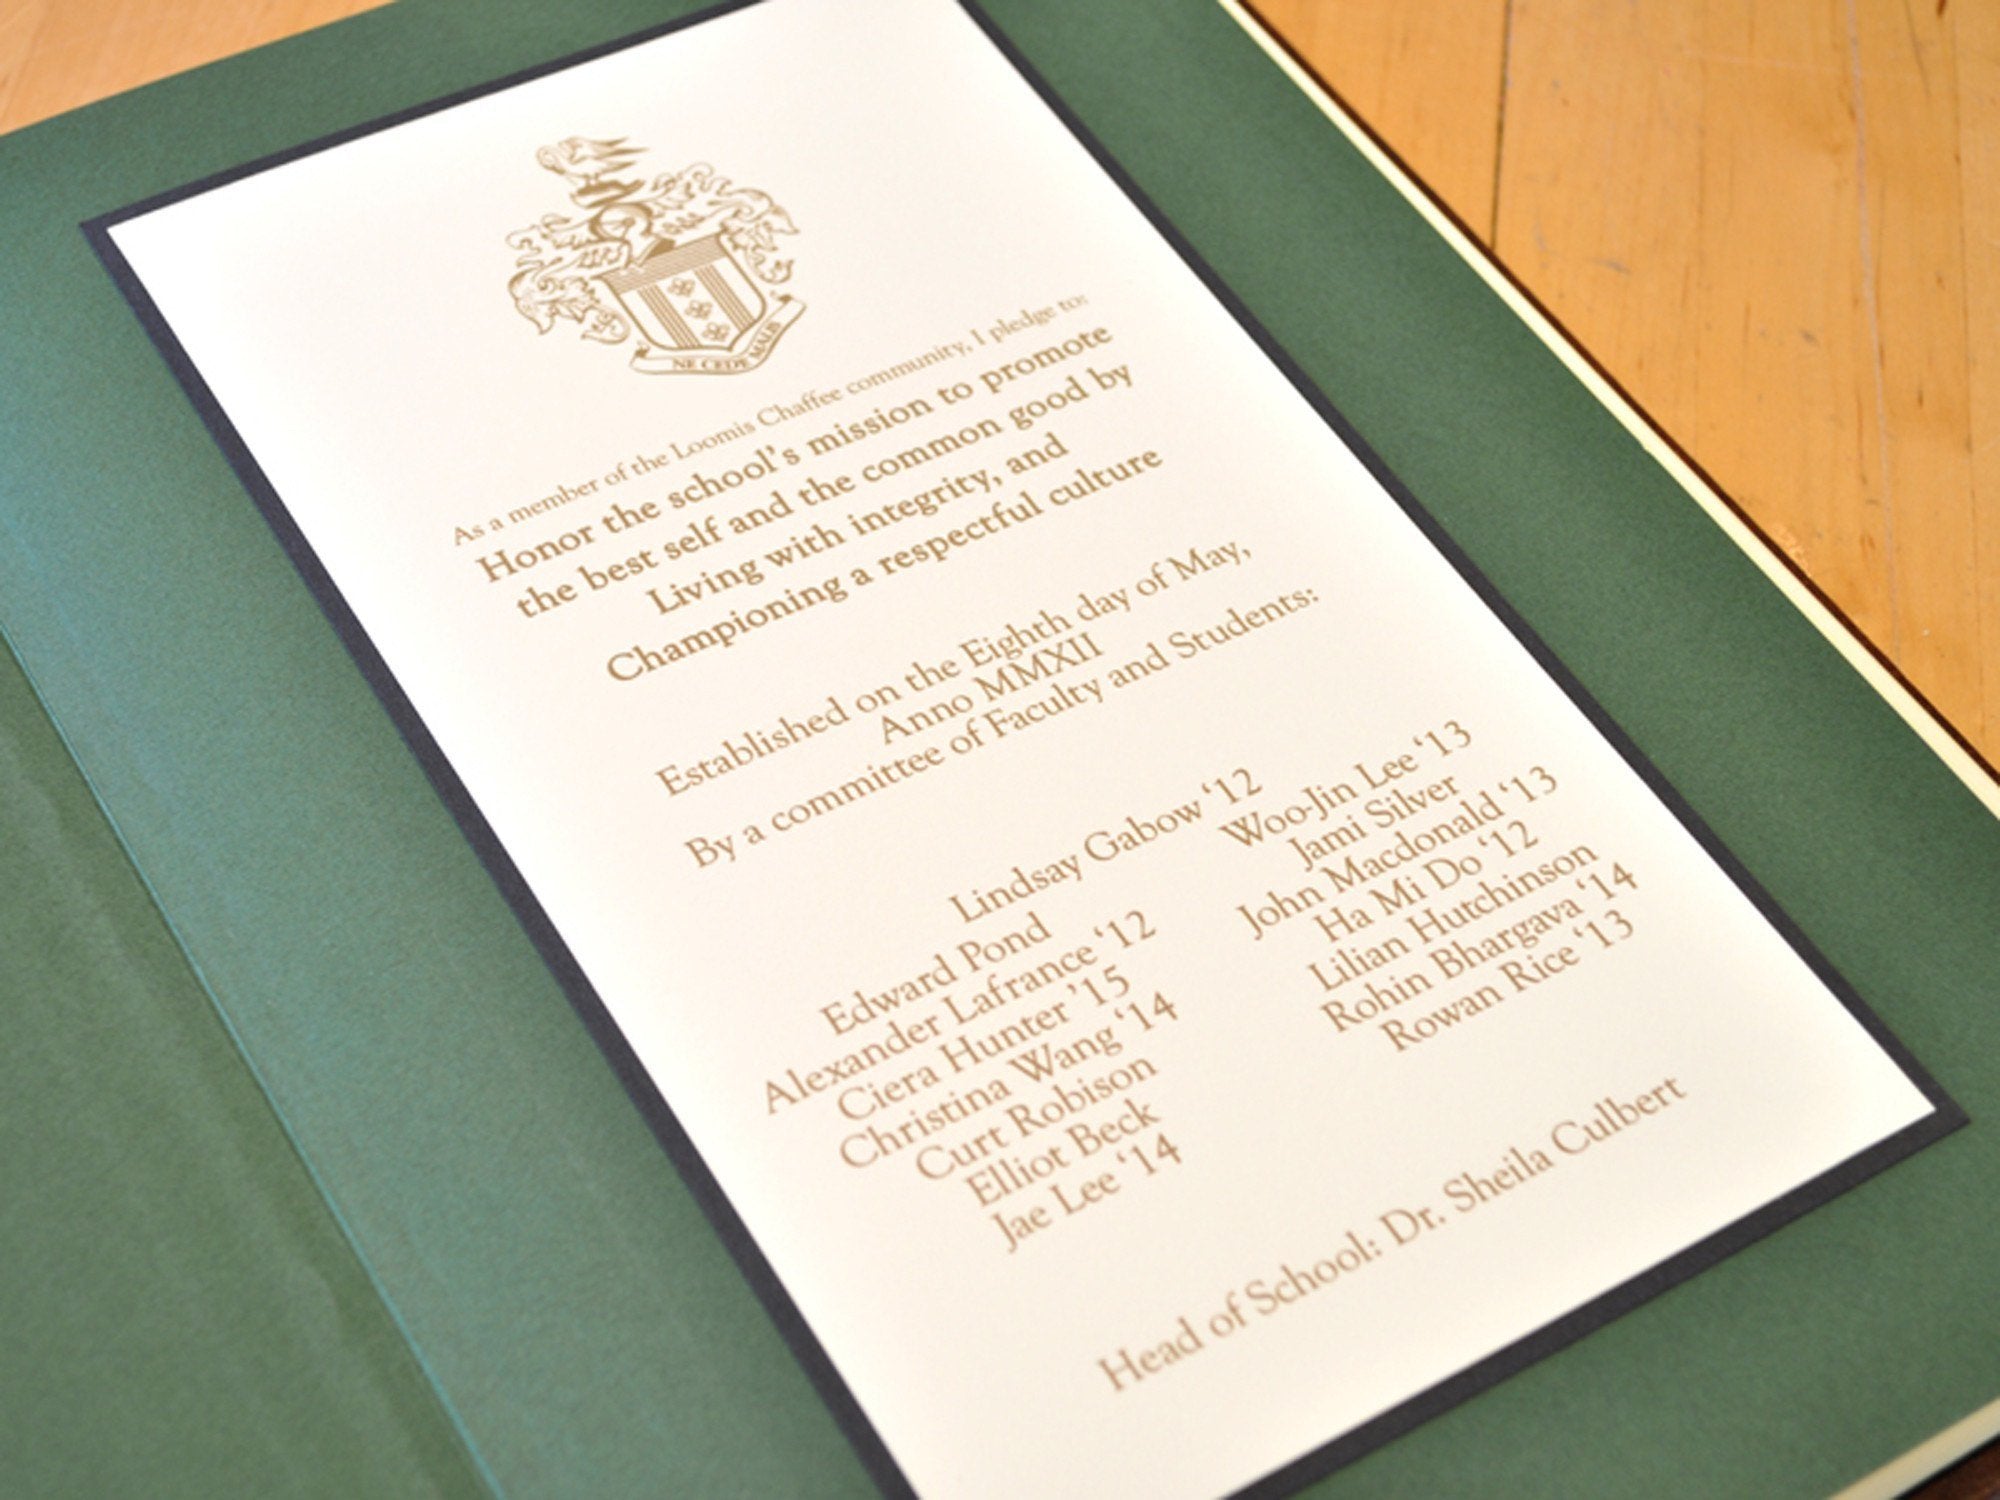 NE CEDE MALIS
As a member of the Loomis Chaffee community, I pledge to:
Honor the school's mission to promote
the best self and the common good by
Living with integrity, and
Championing a respectful culture
Established on the Eighth day of May,
Anno MMXII
By a committee of Faculty and Students:
Lindsay Gabow '12
Edward Pond
Alexander Lafrance '12
Ciera Hunter '15
Christina Wang '14
Curt Robison
Elliot Beck
Jae Lee '14
Woo-Jin Lee '13
Jami Silver
John Macdonald '13
Ha Mi Do '12
Lilian Hutchinson
Rohin Bhargava '14
Rowan Rice '13
Head of School: Dr. Sheila Culbert